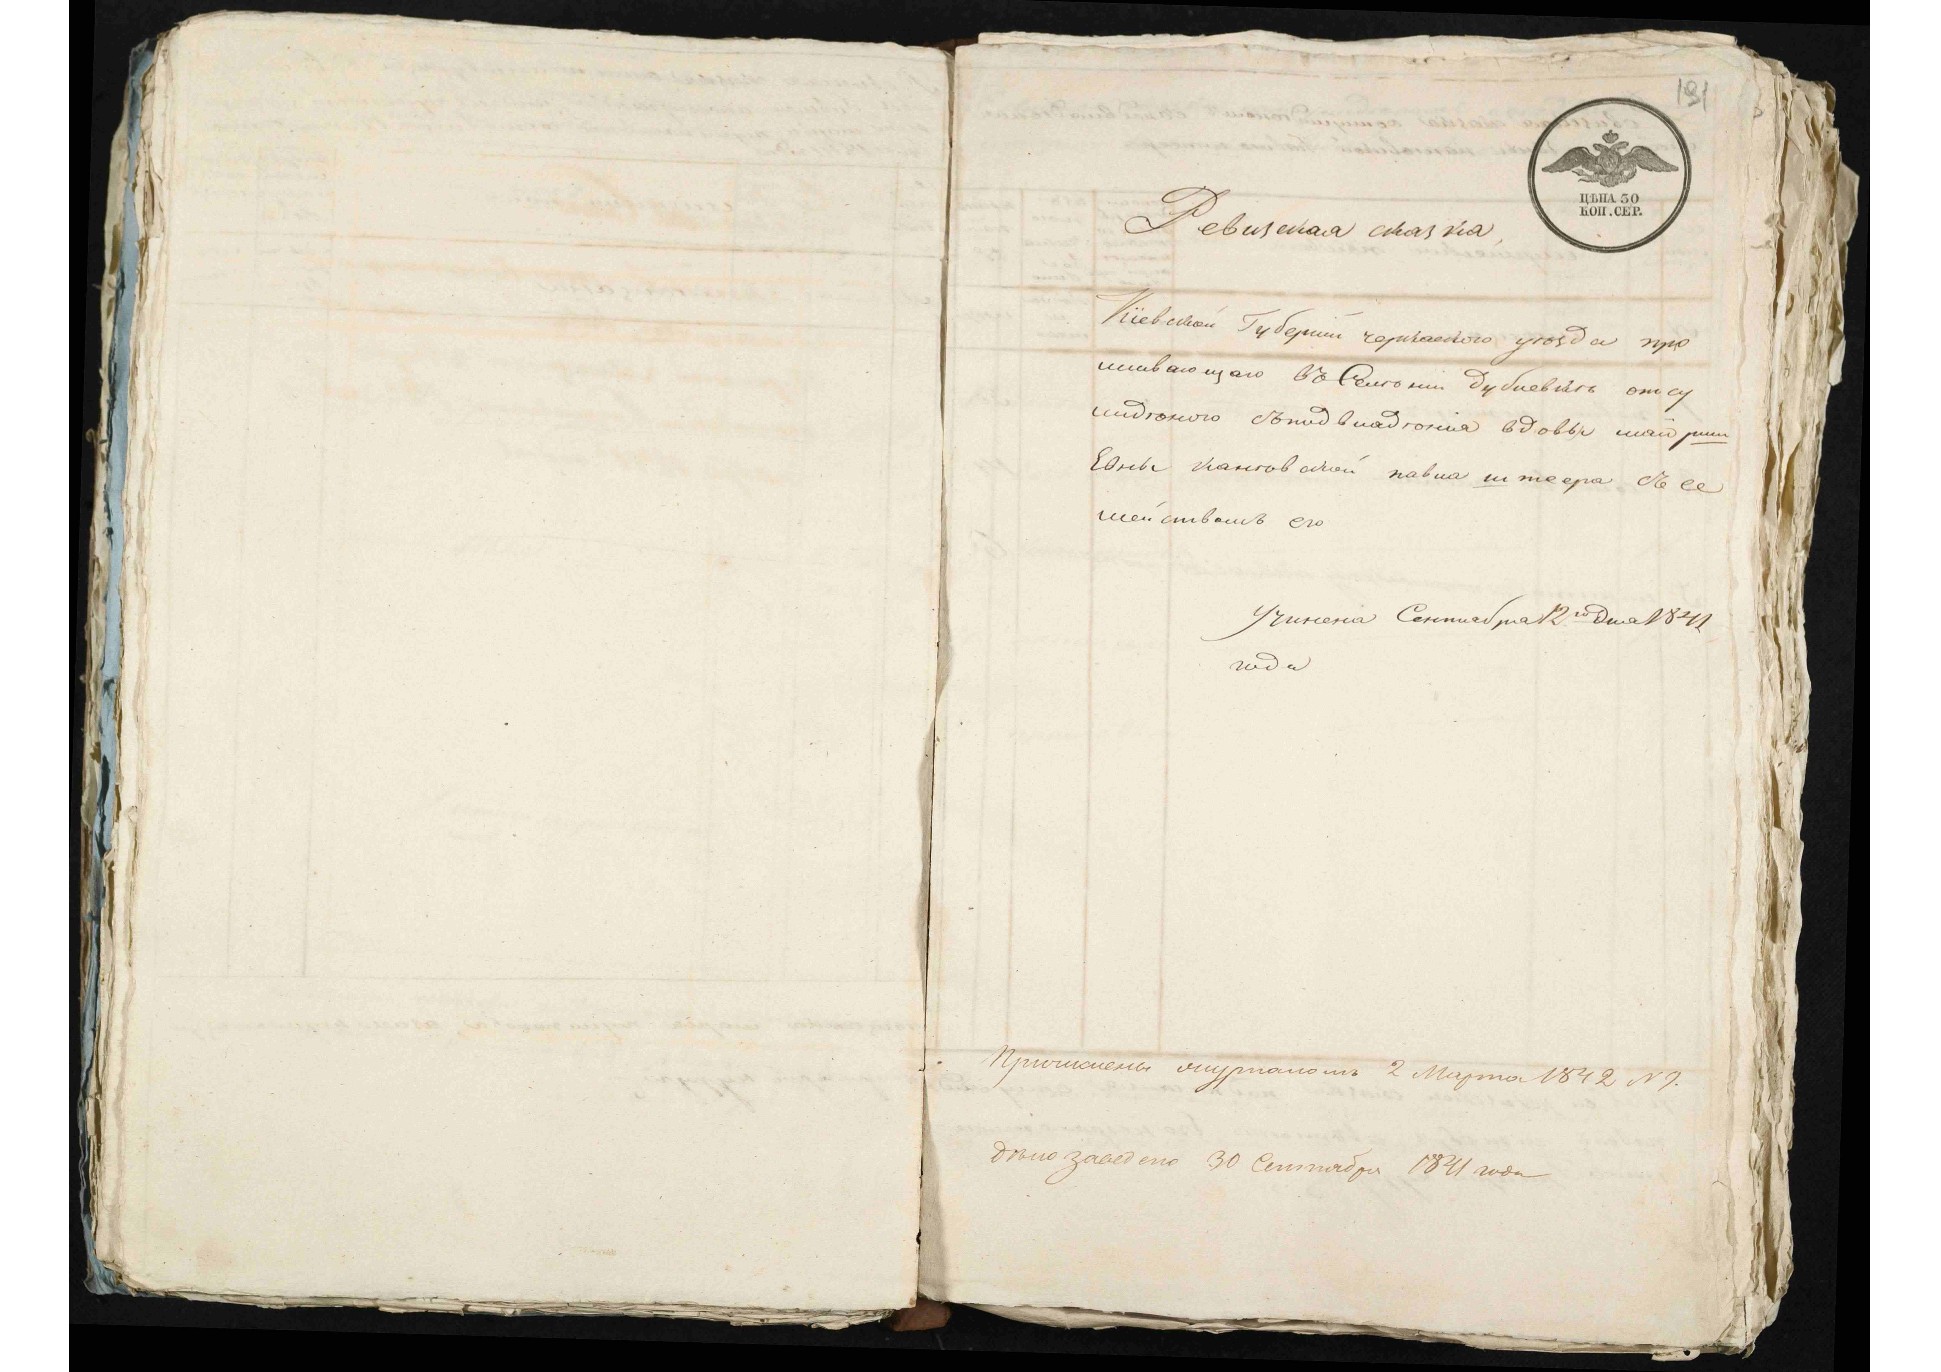 191
ЦѢНА 30
КОП. СЕР.
Ревизская сказка,
Кіевской Губерніи черкаского уѣзда про
живающаго въ Селеніи Дубіевкѣ отсу
жденого съ подвладѣнія вдовы маіорши
Евы павла штеера съ се
мействомъ его
Учинена Сентября 12го дня 1841
года
Причислены журналомъ 2 Марта 1842 N 9.
дѣло заведено 30 Сентября 1841 года